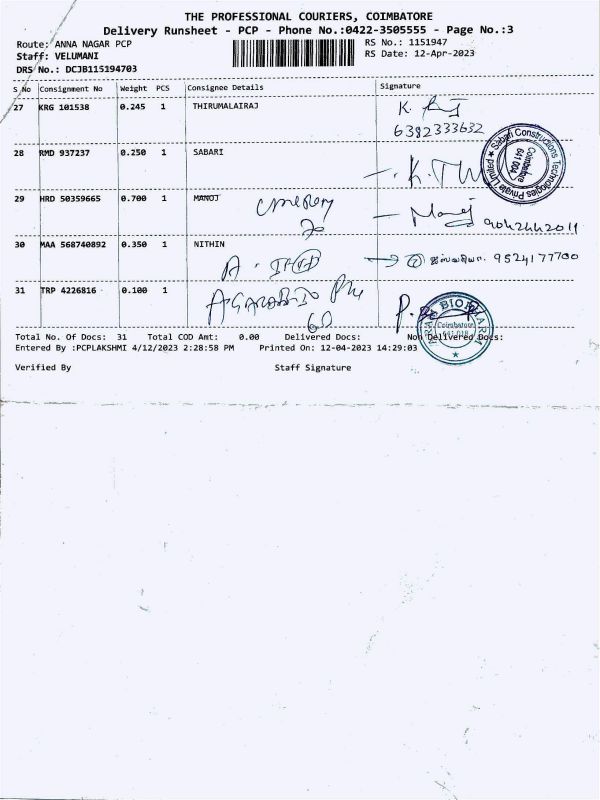 THE PROFESSIONAL COURIERS, COIMBATORE
Delivery Runsheet - PCP - Phone No.:0422-3505555 - Page No.:3
Route: ANNA NAGAR PCP RS No.: 1151947
Staff: VELUMANI RS Date: 12-Apr-2023
DRS No.: DCJB115194703
S No Consignment No Weight PCS Consignee Details Signature
27 KRG 101538 0.245 1 THIRUMALAIRAJ K.
6382333632
28 RMD 937237 0.250 1 SABARI
Sabari Constructions Technologies Private Limited ★
Coimbatore
641 004
29 HRD 50359665 0.700 1 MANOJ Manoj
30 MAA 568740892 0.350 1 NITHIN 9524177700
31 TRP 4226816 0.100 1
60
Coimbatore
641 018
★
Total No. Of Docs: 31 Total COD Amt: 0.00 Delivered Docs: Non Delivered Docs:
Entered By :PCPLAKSHMI 4/12/2023 2:28:58 PM Printed On: 12-04-2023 14:29:03
Verified By Staff Signature